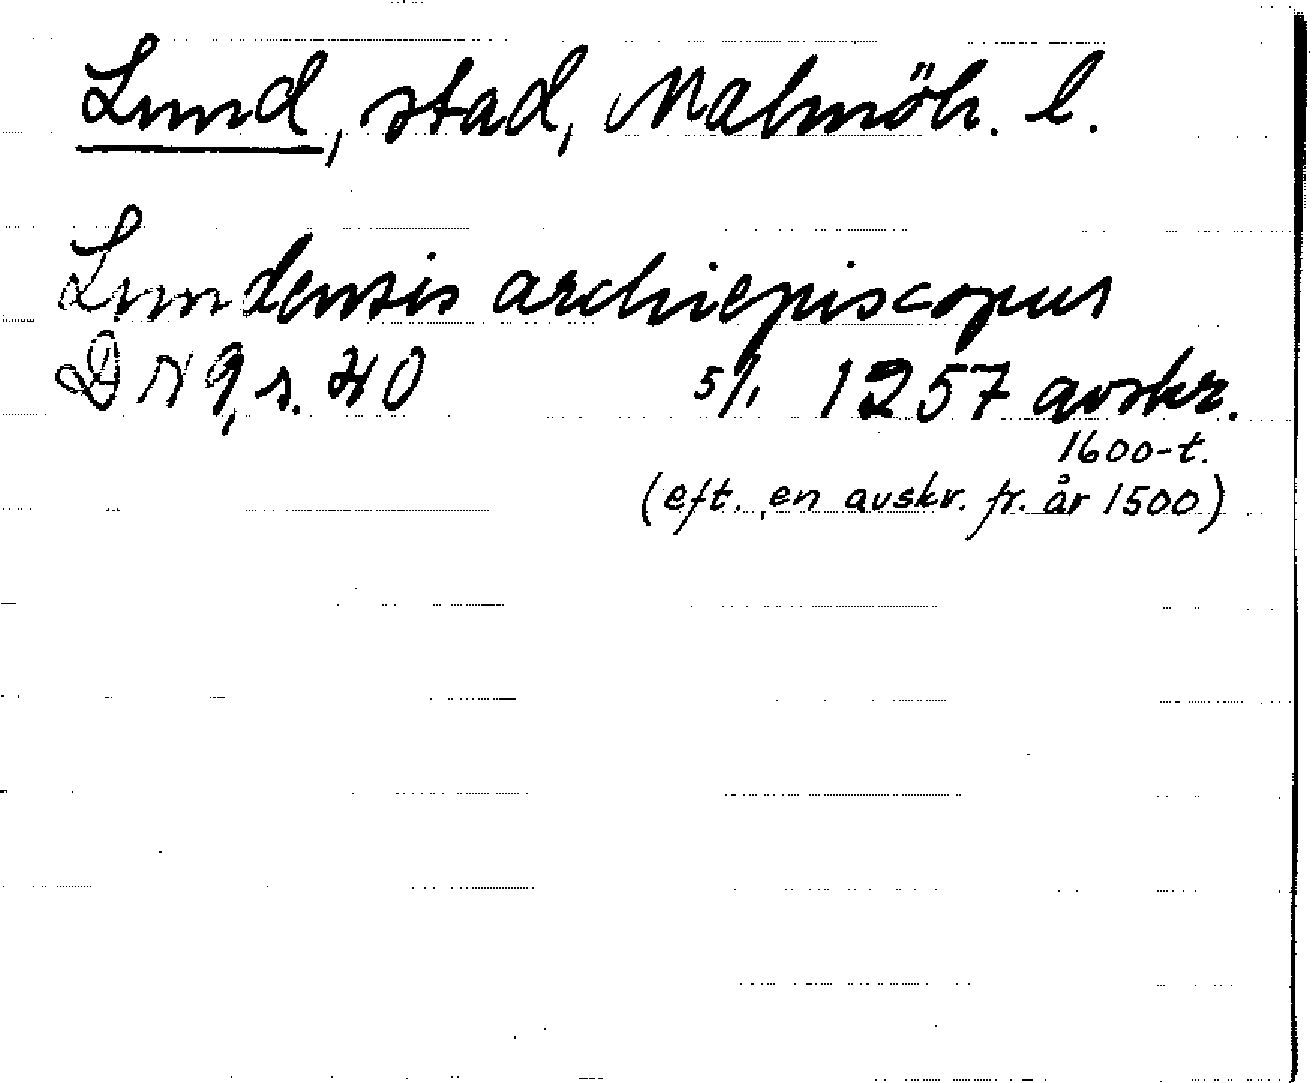 Lund, stad, Malmöh. l.
Lundensis archiepiscopus
DN 9, s. 40 5/1 1257 avskr.
1600-t.
(eft. en avskr. fr. år 1500)